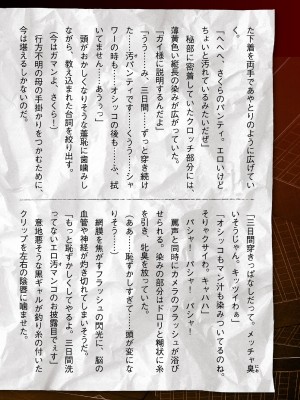 た下着を両手であやとりのように広げてい
く。
「へへへ、さくらのパンティ。エロいけど
ちょいと汚れているみたいだぜ」
秘部に密着していたクロッチ部分には、
薄黄色い縦長の染みが広がっていた。
「ガイ様に説明するんだよ」
「うう……み、三日間……ずっと穿き続け
た……汚パンティです……くうう……シャ
ワーの時も……オシッコの後も……ふ、拭
いてません……あううっ」
頭がおかしくなりそうな羞恥に歯噛みし
ながら、教え込まれた台詞を絞り出す。
（今はガマンよ、さくら！）
行方不明の母の手掛かりをつかむために、
今は堪えるしかないのだ。
「三日間穿きっぱなしだって。メッチャ臭
いそうじゃん。キッツイわぁ」
「オシッコもマン汁も染みついてるのね。
そりゃクサイわ。キャハハ」
パシャー！パシャー！パシャー！
罵声と同時にカメラのフラッシュが浴び
せられる。染みの部分はドロリと糊状に糸
を引き、牝臭を放っていた。
（ああ……恥ずかしすぎて……頭が変にな
りそう……）
網膜を焦がすフラッシュの閃光に、脳の
血管や神経が灼き切れてしまいそうだ。
「もっと恥ずかしくしてやるよ。三日間洗
ってないエロ汚マンコのお披露目でぇす」
意地悪そうな黒ギャルが釣り糸の付いた
クリップを左右の陰唇に噛ませた。